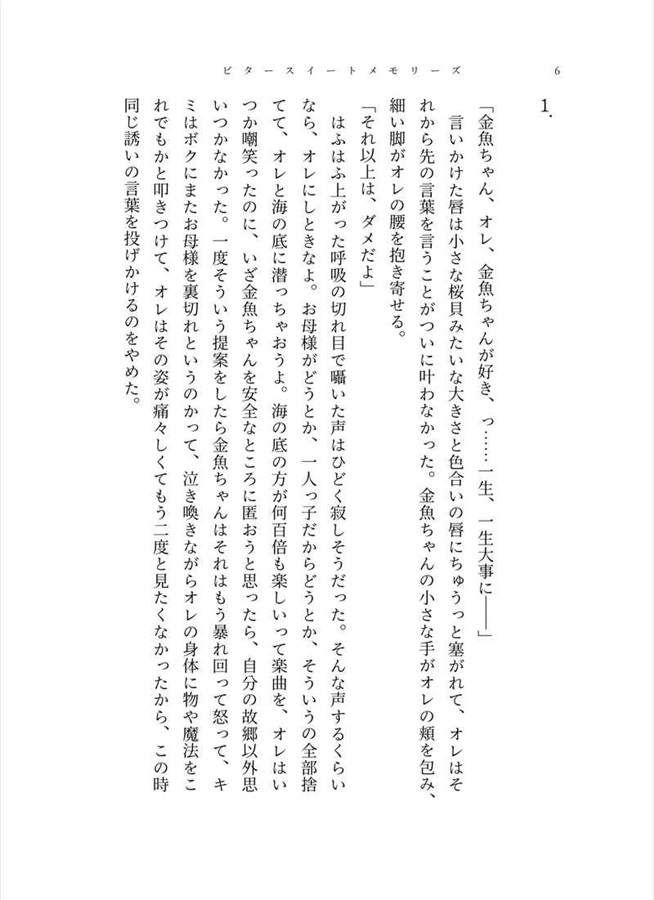 ビタースイートメモリーズ
6
1.
「金魚ちゃん、オレ、金魚ちゃんが好き、っ……一生、一生大事に――」
言いかけた唇は小さな桜貝みたいな大きさと色合いの唇にちゅうっと塞がれて、オレはそ
れから先の言葉を言うことがついに叶わなかった。金魚ちゃんの小さな手がオレの頬を包み、
細い脚がオレの腰を抱き寄せる。
「それ以上は、ダメだよ」
はふはふ上がった呼吸の切れ目で囁いた声はひどく寂しそうだった。そんな声するくらい
なら、オレにしときなよ。お母様がどうとか、一人っ子だからどうとか、そういうの全部捨
てて、オレと海の底に潜っちゃおうよ。海の底の方が何百倍も楽しいって楽曲を、オレはい
つか嘲笑ったのに、いざ金魚ちゃんを安全なところに匿おうと思ったら、自分の故郷以外思
いつかなかった。一度そういう提案をしたら金魚ちゃんはそれはもう暴れ回って怒って、キ
ミはボクにまたお母様を裏切れというのかって、泣き喚きながらオレの身体に物や魔法をこ
れでもかと叩きつけて、オレはその姿が痛々しくてもう二度と見たくなかったから、この時
同じ誘いの言葉を投げかけるのをやめた。